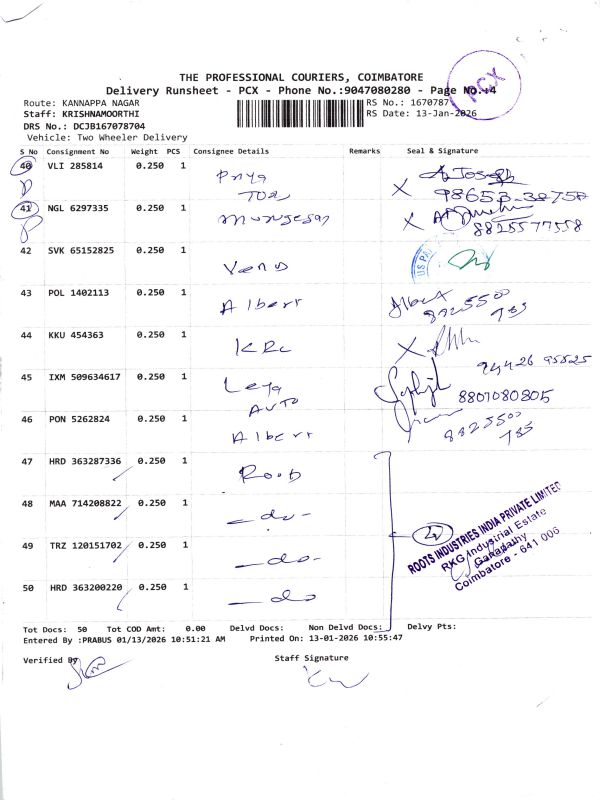 PCX
THE PROFESSIONAL COURIERS, COIMBATORE
Delivery Runsheet - PCX - Phone No.:9047080280 - Page No.:4
Route: KANNAPPA NAGAR
RS No.: 1670787
Staff: KRISHNAMOORTHI
RS Date: 13-Jan-2026
DRS No.: DCJB167078704
Vehicle: Two Wheeler Delivery
S No Consignment No Weight PCS Consignee Details Remarks Seal & Signature
40 VLI 285814 0.250 1 Priya
41 NGL 6297335 0.250 1
8825577558
42 SVK 65152825 0.250 1
US PA
43 POL 1402113 0.250 1 Albert Albert
8825500
785
44 KKU 454363 0.250 1 KRC
94426 95825
45 IXM 509634617 0.250 1 Leya
AUTO
8807080805
46 PON 5262824 0.250 1 Albert
8825500
785
47 HRD 363287336 0.250 1 Roots
48 MAA 714208822 0.250 1 -do-
49 TRZ 120151702 0.250 1 -do-
50 HRD 363200220 0.250 1 -do
4
ROOTS INDUSTRIES INDIA PRIVATE LIMITED
RKG Industrial Estate
Ganapathy
Coimbatore - 641 006
Tot Docs: 50 Tot COD Amt: 0.00 Delvd Docs: Non Delvd Docs: Delvy Pts:
Entered By :PRABUS 01/13/2026 10:51:21 AM Printed On: 13-01-2026 10:55:47
Verified By
Staff Signature